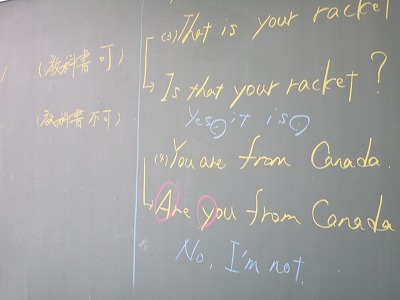 (3) That is your racket
(教科書 可)
Is that your racket?
(教科書 不可)
Yes, it is.
(4) You are from Canada.
Are you from Canada
No, I'm not.